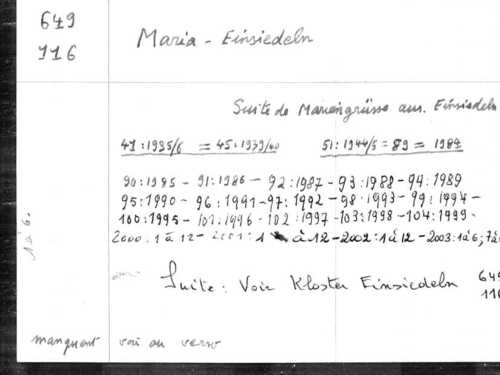 649
116
Maria - Einsiedeln
Suite de Mariengrüsse aus. Einsiedeln
41:1935/6 = 45:1939/40 51:1944/5 = 89 = 1984
90:1985 - 91:1986 - 92:1987 - 93:1988 - 94:1989
95:1990 - 96:1991 - 97:1992 - 98:1993 - 99:1994 -
100:1995 - 101:1996 - 102:1997 - 103:1998 - 104:1999 -
2000:1 à 12 - 2001:1 à 12 - 2002:1 à 12 - 2003:1 à 6; 7 à
1 à 6.
Suite: Voir Kloster Einsiedeln 649
116
manquent voir au verso